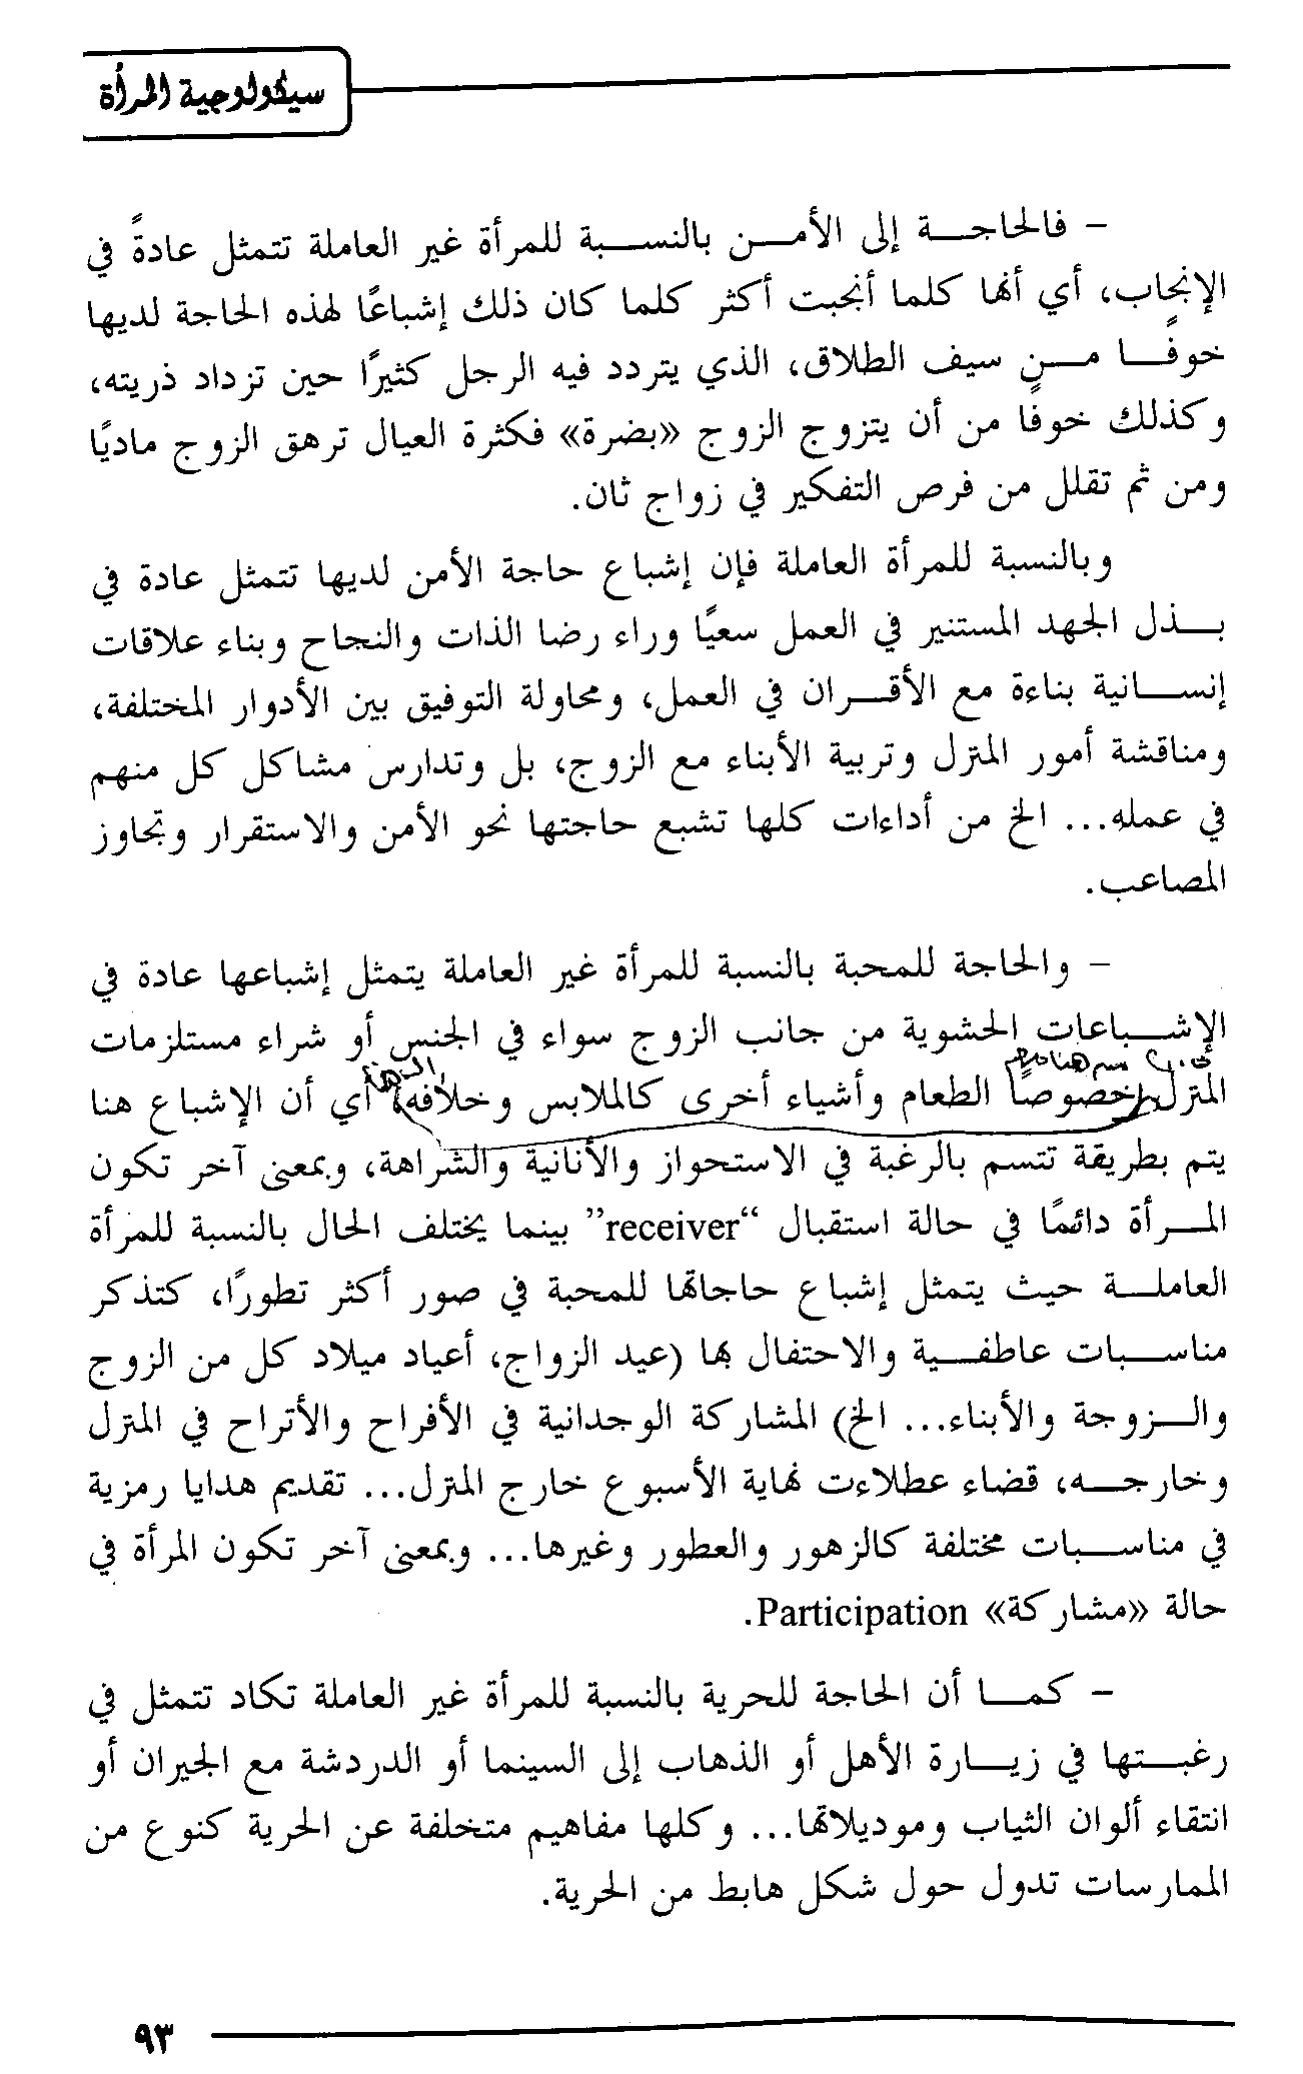 سيكولوجية المرأة
– فالحاجة إلى الأمن بالنسبة للمرأة غير العاملة تتمثل عادةً في
الإنجاب، أي أنها كلما أنجبت أكثر كلما كان ذلك إشباعًا لهذه الحاجة لديها
خوفًا من سيف الطلاق، الذي يتردد فيه الرجل كثيرًا حين تزداد ذريته،
وكذلك خوفًا من أن يتزوج الزوج «بضرة» فكثرة العيال ترهق الزوج ماديًا
ومن ثم تقلل من فرص التفكير في زواج ثان.
وبالنسبة للمرأة العاملة فإن إشباع حاجة الأمن لديها تتمثل عادة في
بذل الجهد المستنير في العمل سعيًا وراء رضا الذات والنجاح وبناء علاقات
إنسانية بناءة مع الأقران في العمل، ومحاولة التوفيق بين الأدوار المختلفة،
ومناقشة أمور المنزل وتربية الأبناء مع الزوج، بل وتدارس مشاكل كل منهم
في عمله... الخ من أداءات كلها تشبع حاجتها نحو الأمن والاستقرار وتجاوز
المصاعب.
– والحاجة للمحبة بالنسبة للمرأة غير العاملة يتمثل إشباعها عادة في
الإشباعات الحشوية من جانب الزوج سواء في الجنس أو شراء مستلزمات
المنزل خصوصًا الطعام وأشياء أخرى كالملابس وخلافه، أي أن الإشباع هنا
يتم بطريقة تتسم بالرغبة في الاستحواز والأنانية والشراهة، وبمعنى آخر تكون
المرأة دائمًا في حالة استقبال “receiver” بينما يختلف الحال بالنسبة للمرأة
العاملة حيث يتمثل إشباع حاجاتها للمحبة في صور أكثر تطورًا، كتذكر
مناسبات عاطفية والاحتفال بها (عيد الزواج، أعياد ميلاد كل من الزوج
والزوجة والأبناء... الخ) المشاركة الوجدانية في الأفراح والأتراح في المنزل
وخارجه، قضاء عطلاءت نهاية الأسبوع خارج المنزل... تقديم هدايا رمزية
في مناسبات مختلفة كالزهور والعطور وغيرها... وبمعنى آخر تكون المرأة في
حالة «مشاركة» Participation.
– كما أن الحاجة للحرية بالنسبة للمرأة غير العاملة تكاد تتمثل في
رغبتها في زيارة الأهل أو الذهاب إلى السينما أو الدردشة مع الجيران أو
انتقاء ألوان الثياب وموديلاتها... وكلها مفاهيم متخلفة عن الحرية كنوع من
الممارسات تدول حول شكل هابط من الحرية.
٩٣